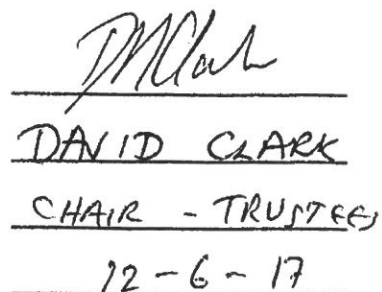 DMClark
DAVID CLARK
CHAIR - TRUSTEES
12-6-17